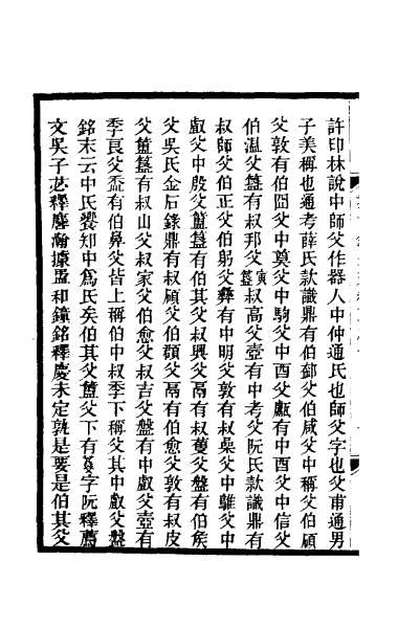 許印林說中師父作器人中仲通氏也師父字也父甫通男
子美稱也通考薛氏款識鼎有伯郄父伯咸父中稱父伯頵
父敦有伯囧父中奠父中駒父中酉父甗有中酉父中信父
伯温父簋有叔邦父寅簋叔高父壺有中考父阮氏款識鼎有
叔師父伯正父伯躬父彝有中明父敦有叔𣐺父中雝父中
叡父中殷父簠簋有伯其父叔興父鬲有叔䕫父盤有伯矦
父吳氏金石錄鼎有叔顧父伯頵父鬲有伯愈父敦有叔皮
父簠簋有叔山父叔家父伯愈父叔吉父盤有中叡父壺有
季良父盉有伯鼻父皆上稱伯中叔季下稱父其中叡父盤
銘末云中氏饗知中爲氏矣伯其父簠父下有字阮釋薦
文吳子苾釋慶翰據盄和鐘銘釋慶未定孰是要是伯其父